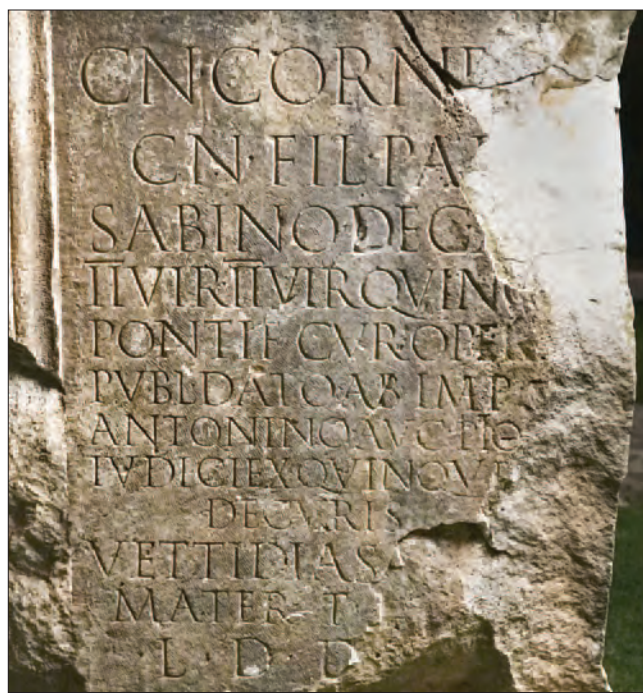 CN CORNE
CN · FIL · PA
SABINO DEC
IIVIR IIVIR QVIN
PONTIF CVR OPER
PVBL DATO AB IMP
ANTONINO AVG PIO
IVDICI EX QVINQVE
DECVRIS
VETTIDIA
MATER T
L · D · D